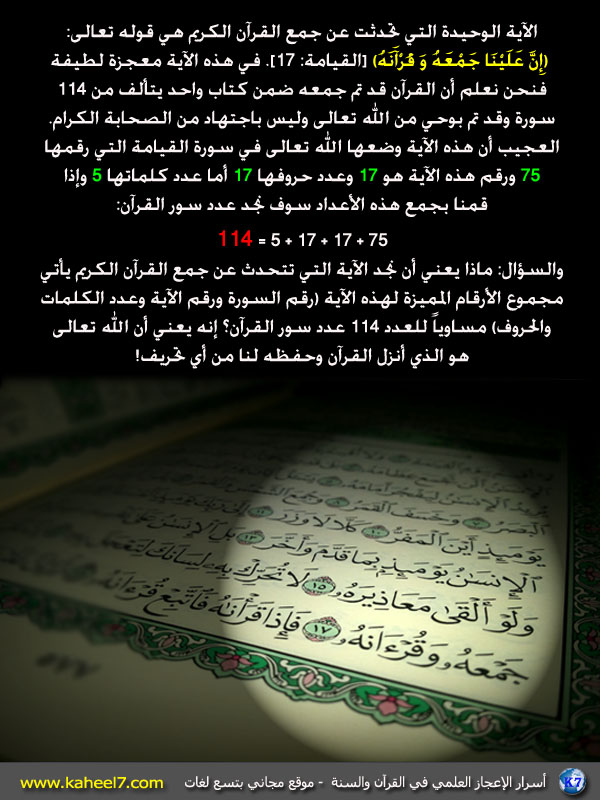 الآية الوحيدة التي تحدثت عن جمع القرآن الكريم هي قوله تعالى:
(إِنَّ عَلَيْنَا جَمْعَهُ وَ قُرْآَنَهُ) [القيامة: 17]. في هذه الآية معجزة لطيفة
فنحن نعلم أن القرآن قد تم جمعه ضمن كتاب واحد يتألف من 114
سورة وقد تم بوحي من الله تعالى وليس باجتهاد من الصحابة الكرام.
العجيب أن هذه الآية وضعها الله تعالى في سورة القيامة التي رقمها
75 ورقم هذه الآية هو 17 وعدد حروفها 17 أما عدد كلماتها 5 وإذا
قمنا بجمع هذه الأعداد سوف نجد عدد سور القرآن:
75 + 17 + 17 + 5 = 114
والسؤال: ماذا يعني أن نجد الآية التي تتحدث عن جمع القرآن الكريم يأتي
مجموع الأرقام المميزة لهذه الآية (رقم السورة ورقم الآية وعدد الكلمات
والحروف) مساوياً للعدد 114 عدد سور القرآن؟ إنه يعني أن الله تعالى
هو الذي أنزل القرآن وحفظه لنا من أي تحريف!
ٱلْبَصَرُ ٧ وَخَسَفَ ٱلْقَمَرُ
يَوْمَئِذٍ أَيْنَ ٱلْمَفَرُّ ١٠ كَلَّا لَا وَزَرَ ١١
ٱلْإِنسَٰنُ يَوْمَئِذٍۭ بِمَا قَدَّمَ وَأَخَّرَ ١٣ بَلِ ٱلْإِنسَٰنُ عَلَىٰ
وَلَوْ أَلْقَىٰ مَعَاذِيرَهُۥ ١٥ لَا تُحَرِّكْ بِهِۦ لِسَانَكَ لِتَعْجَلَ
جَمْعَهُۥ وَقُرْءَانَهُۥ ١٧ فَإِذَا قَرَأْنَٰهُ فَٱتَّبِعْ قُرْءَانَهُۥ
٥٧٧
K7 أسرار الإعجاز العلمي في القرآن والسنة - موقع مجاني بتسع لغات www.kaheel7.com